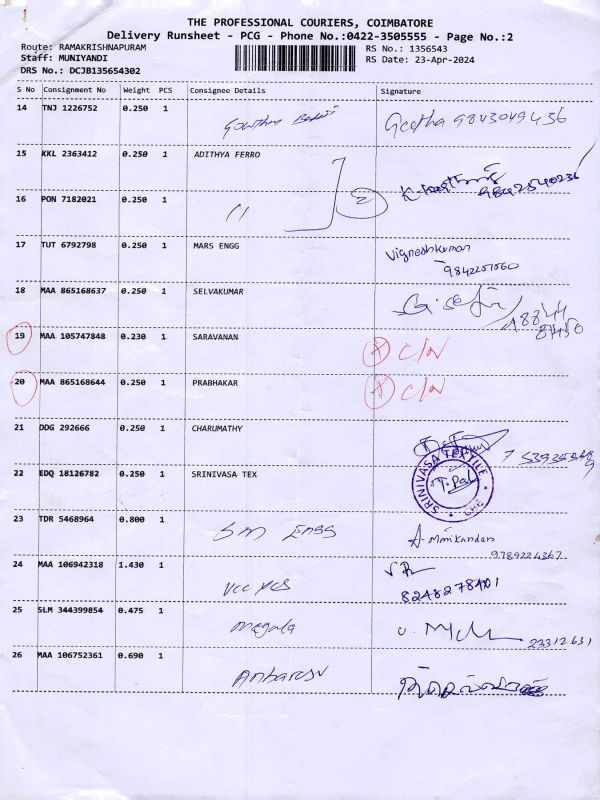 THE PROFESSIONAL COURIERS, COIMBATORE
Delivery Runsheet - PCG - Phone No.:0422-3505555 - Page No.:2
Route: RAMAKRISHNAPURAM
RS No.: 1356543
Staff: MUNIYANDI
RS Date: 23-Apr-2024
DRS No.: DCJB135654302
S No Consignment No Weight PCS Consignee Details Signature
14 TNJ 1226752 0.250 1 Geetha 9843049436
15 KKL 2363412 0.250 1 ADITHYA FERRO
16 PON 7182021 0.250 1 11 2 9842540236
17 TUT 6792798 0.250 1 MARS ENGG Vigneshkumar
9842201060
18 MAA 865168637 0.250 1 SELVAKUMAR
19 MAA 105747848 0.230 1 SARAVANAN X C/N
20 MAA 865168644 0.250 1 PRABHAKAR X C/N
21 DDG 292666 0.250 1 CHARUMATHY
22 EDQ 18126782 0.250 1 SRINIVASA TEX SRINIVASA TEXTILE T. Pal CBE
23 TDR 5468964 0.800 1 SM ENGG A. Manikandan
9789224367
24 MAA 106942318 1.430 1 VCC
8248278401
25 SLM 344399854 0.475 1 Megala 22312631
26 MAA 106752361 0.690 1